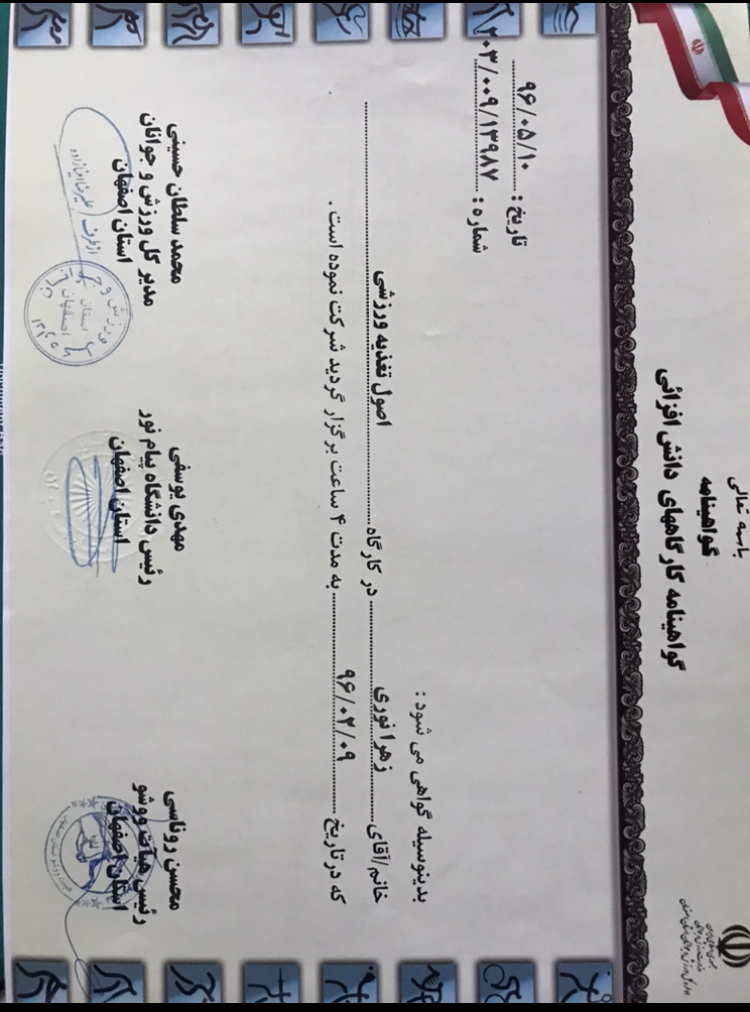 باسمه تعالی
گواهینامه
گواهینامه کارگاههای دانش افزائی
تاریخ : ۹۶/۰۵/۱۰
شماره : ۲۰۳/۰۰۹/۱۳۹۸۷
بدینوسیله گواهی می شود :
خانم/آقای زهرا نوری در کارگاه اصول تغذیه ورزشی
که در تاریخ ۹۶/۰۲/۰۹ به مدت ۴ ساعت برگزار گردید شرکت نموده است .
محسن روناسی
رئیس هیأت ووشو
استان اصفهان
مهدی یوسفی
رئیس دانشگاه پیام نور
استان اصفهان
محمد سلطان حسینی
مدیر کل ورزش و جوانان
استان اصفهان
از طرف
استان
اصفهان